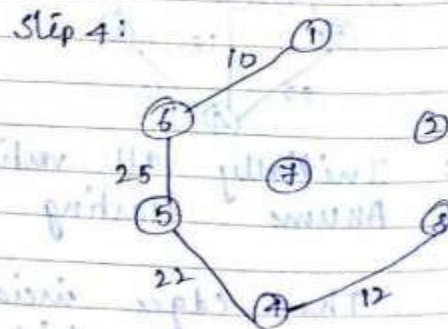 Step 4:
1
10
6
2
25
7
5
3
22
12
4